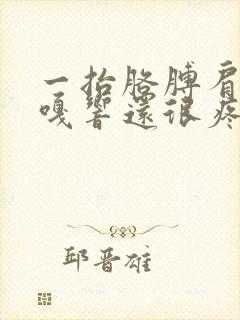 一抬胳膊肩
嘎響還很疼
邱晋雄